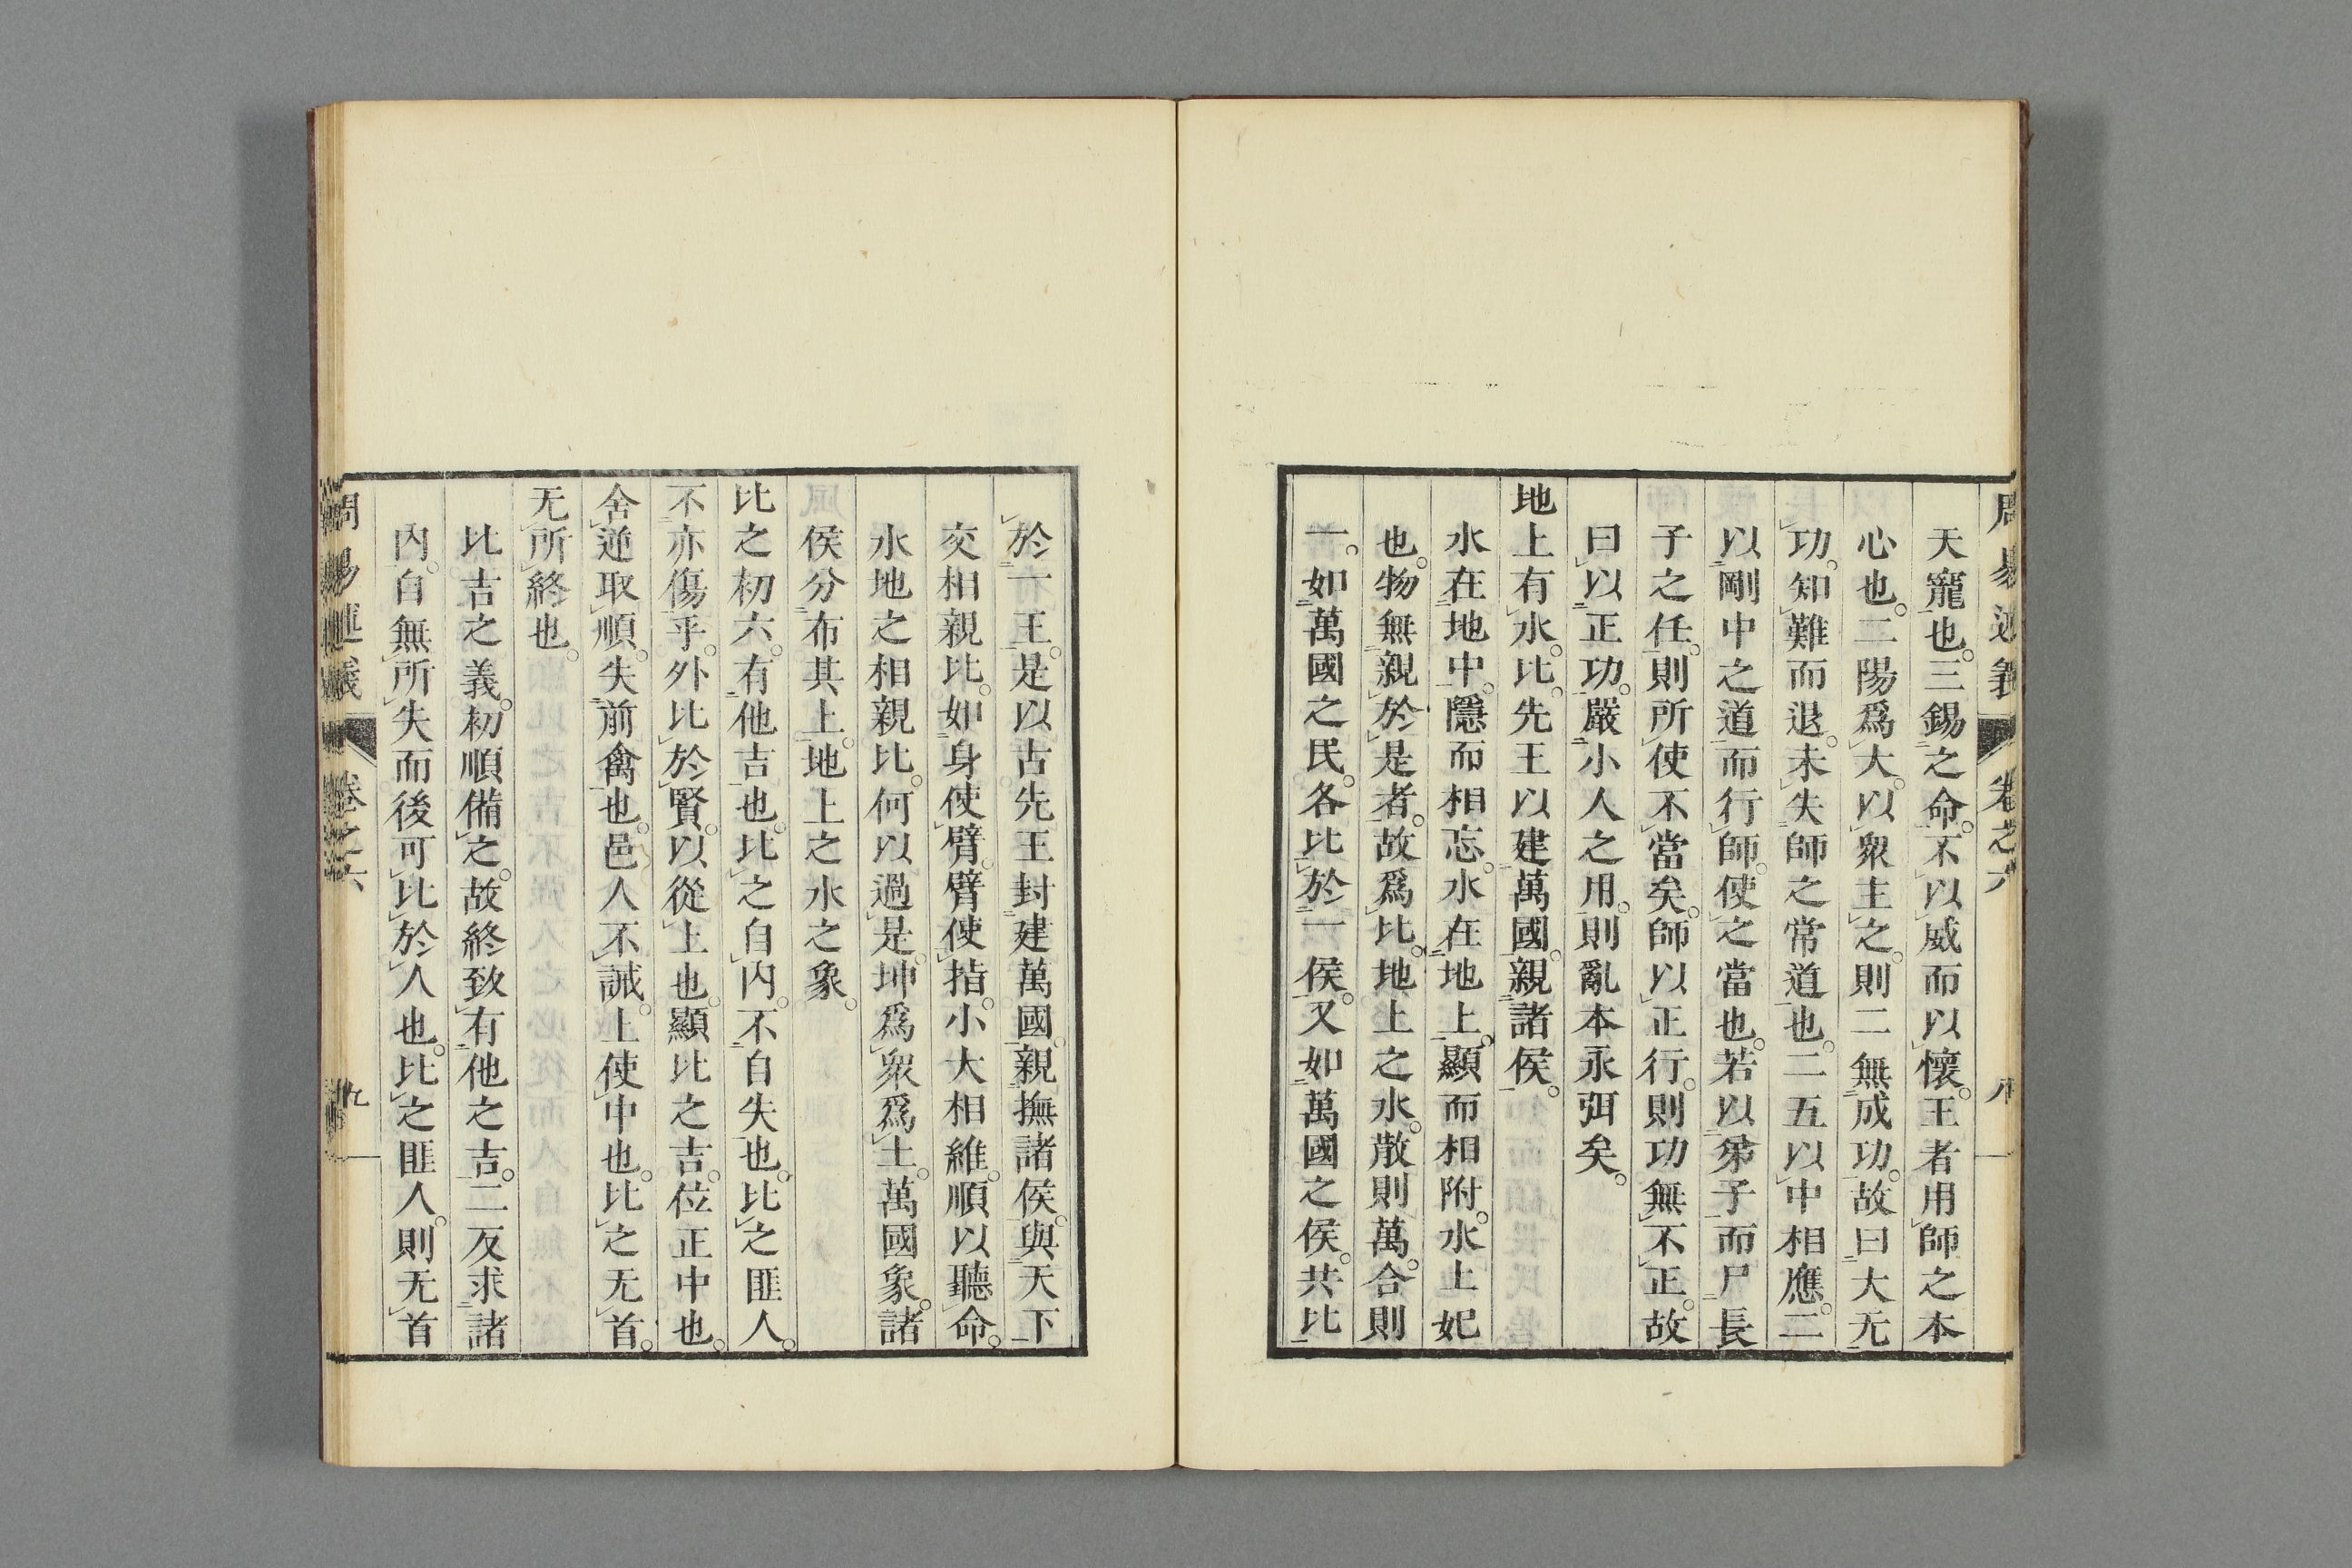 周易述義 卷之六 八
天寵也。三錫之命。不以威而以懷。王者用師之本
心也。二陽爲大。以衆主之。則二無成功。故曰大无
功。知難而退。未失師之常道也。二五以中相應。二
以剛中之道而行師。使之當也。若以弟子而尸長
子之任。則所使不當矣。師以正行。則功無不正。故
曰以正功。嚴小人之用。則亂本永弭矣。
地上有水。比。先王以建萬國。親諸侯。
水在地中。隱而相忘。水在地上。顯而相附。水土妃
也。物無親於是者。故爲比。地上之水。散則萬。合則
一。如萬國之民。各比於一侯。又如萬國之侯。共比
於一王。是以古先王封建萬國。親撫諸侯。與天下
交相親比。如身使臂。臂使指。小大相維。順以聽命。
水地之相親比。何以過是。坤爲衆爲土。萬國象。諸
侯分布其上。地上之水之象。
比之初六。有他吉也。比之自内。不自失也。比之匪人。
不亦傷乎。外比於賢。以從上也。顯比之吉。位正中也。
舍逆取順。失前禽也。邑人不誡。上使中也。比之无首。
无所終也。
比吉之義。初順備之。故終致有他之吉。二反求諸
内。自無所失而後可比於人也。比之匪人。則无首
周易述義 卷之六 九